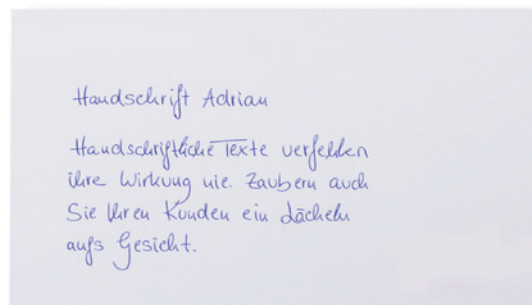 Handschrift Adrian
Handschriftliche Texte verfehlen
ihre Wirkung nie. Zaubern auch
Sie Ihren Kunden ein Lächeln
aufs Gesicht.